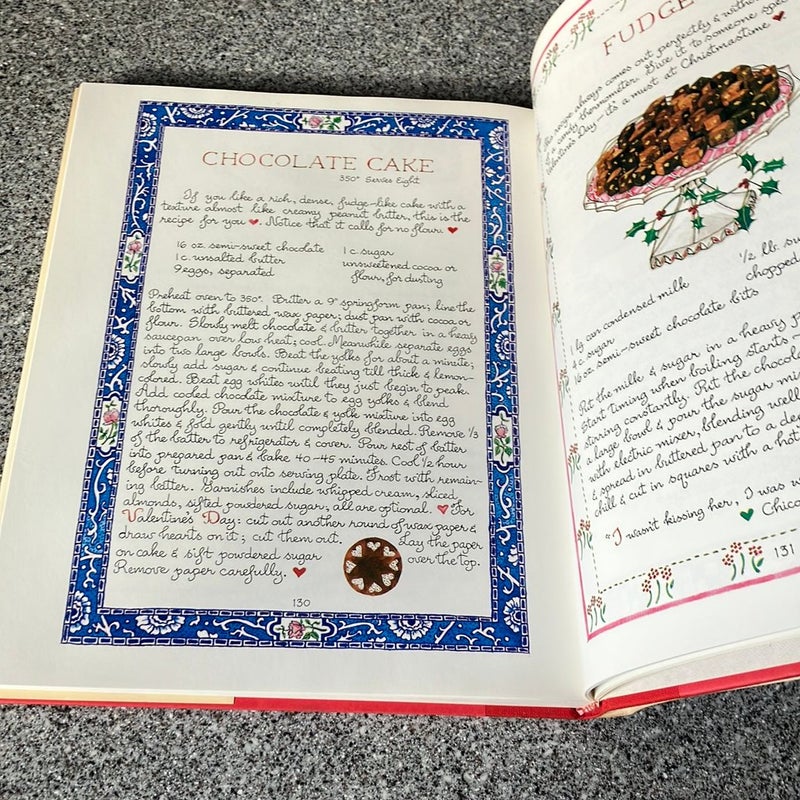 CHOCOLATE CAKE
350° Serves Eight
If you like a rich, dense, fudge-like cake with a
texture almost like creamy peanut butter, this is the
recipe for you ♥. Notice that it calls for no flour. ♥
16 oz. semi-sweet chocolate
1 c. unsalted butter
9 eggs, separated
1 c. sugar
unsweetened cocoa or
flour, for dusting
Preheat oven to 350°. Butter a 9" springform pan; line the
bottom with buttered wax paper; dust pan with cocoa or
flour. Slowly melt chocolate & butter together in a heavy
saucepan over low heat; cool. Meanwhile separate eggs
into two large bowls. Beat the yolks for about a minute;
slowly add sugar & continue beating till thick & lemon-
colored. Beat egg whites until they just begin to peak.
Add cooled chocolate mixture to egg yolks & blend
thoroughly. Pour the chocolate & yolk mixture into egg
whites & fold gently until completely blended. Remove 1/3
of the batter to refrigerator & cover. Pour rest of batter
into prepared pan & bake 40-45 minutes. Cool 1/2 hour
before turning out onto serving plate. Frost with remain-
ing batter. Garnishes include whipped cream, sliced
almonds, sifted powdered sugar; all are optional. ♥ For
Valentine's Day: cut out another round of wax paper &
draw hearts on it; cut them out. Lay the paper
on cake & sift powdered sugar over the top.
Remove paper carefully. ♥
130
FUDGE
This recipe always comes out perfectly & witho
a candy thermometer. Give it to someone spec
Valentine's Day - it's a must at Christmastime ♥
1 lg can condensed milk
sugar
16 oz. semi-sweet chocolate bits
1/2 lb. su
chopped
Put the milk & sugar in a heavy p
Start timing when boiling starts
stirring constantly. Put the chocola
a large bowl & pour the sugar mi
with electric mixer, blending well
& spread in buttered pan to a de
chill & cut in squares with a hot
"I wasn't kissing her, I was w
♥ Chico
131